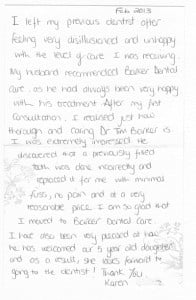 Feb 2013
I left my previous dentist after
feeling very disillusioned and unhappy
with the level of care I was receiving.
My husband recommended Barker Dental
Care, as he had always been very happy
with his treatment. After my first
consultation, I realised just how
thorough and caring Dr Tim Barker is
I was extremely impressed. He
discovered that a previously filled
tooth was done incorrectly and
replaced it for me with minimal
fuss, no pain and at a very
reasonable price. I am so glad that
I moved to Barker Dental Care.
I have also been very pleased at how
he has welcomed our 5 year old daughter
and as a result, she looks forward to
going to the dentist! Thank You.
Karen